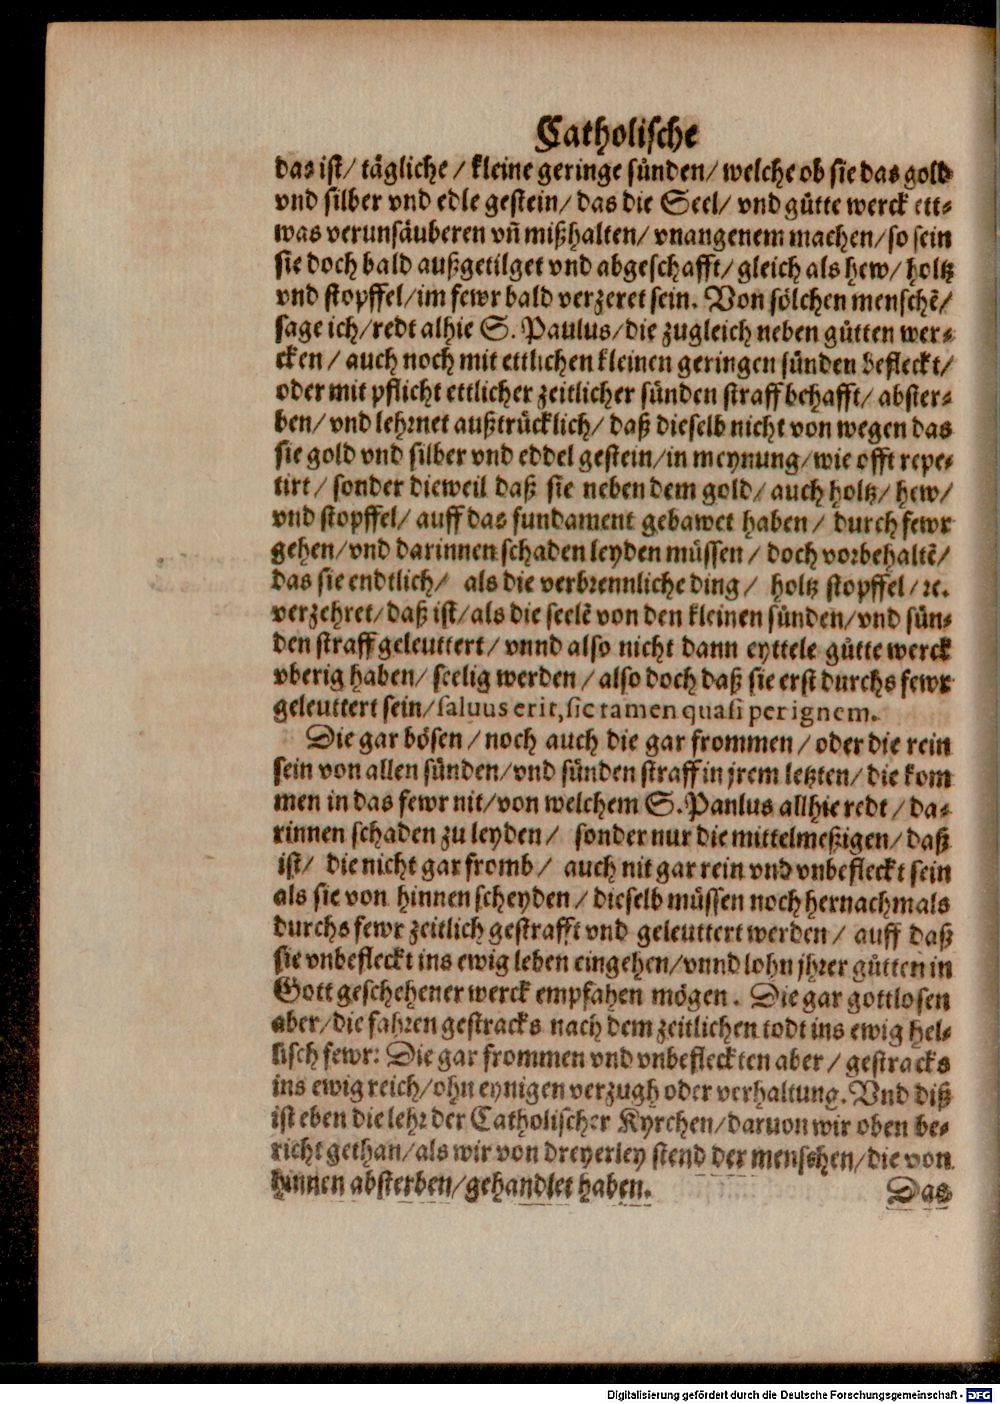 Catholische
das ist/ tägliche / kleine geringe sünden/ welche ob sie das gold
vnd silber vnd edle gestein/ das die Seel/ vnd gütte werck ett-
was verunsäuberen vñ mißhalten/ vnangenem machen/ so sein
sie doch bald außgetilget vnd abgeschafft/ gleich als hew/ holtz
vnd stopffel/ im fewr bald verzeret sein. Von sölchen menschē/
sage ich/ redt alhie S. Paulus/ die zugleich neben gütten wer-
cken / auch noch mit ettlichen kleinen geringen sünden befleckt/
oder mit pflicht ettlicher zeitlicher sünden straff behafft/ abster-
ben/ vnd lehrnet außtrücklich/ daß dieselb nicht von wegen das
sie gold vnd silber vnd eddel gestein/ in meynung/ wie offt repe-
tirt/ sonder dieweil daß sie neben dem gold/ auch holtz/ hew/
vnd stopffel/ auff das fundament gebawet haben / durch fewr
gehen/ vnd darinnen schaden leyden müssen / doch vorbehaltē/
das sie endtlich/ als die verbrennliche ding / holtz stopffel/ ꝛc.
verzehret/ daß ist/ als die seelē von den kleinen sünden/ vnd sün-
den straff geleuttert/ vnnd also nicht dann eyttele gütte werck
vberig haben/ seelig werden / also doch daß sie erst durchs fewr
geleuttert sein/ saluus erit, sic tamen quasi per ignem.
Die gar bösen / noch auch die gar frommen / oder die rein
sein von allen sünden/ vnd sünden straff in jrem letzten/ die kom
men in das fewr nit/ von welchem S. Panlus allhie redt / da-
rinnen schaden zu leyden / sonder nur die mittelmeßigen/ daß
ist/ die nicht gar fromb / auch nit gar rein vnd vnbefleckt sein
als sie von hinnen scheyden / dieselb müssen noch hernachmals
durchs fewr zeitlich gestrafft vnd geleuttert werden / auff daß
sie vnbefleckt ins ewig leben eingehen/ vnnd lohn jhrer gütten in
Gott geschehener werck empfahen mögen. Die gar gottlosen
aber/ die fahren gestracks nach dem zeitlichen todt ins ewig hel-
lisch fewr: Die gar frommen vnd vnbefleckten aber / gestracks
ins ewig reich/ ohn eynigen verzugh oder verhaltung. Vnd diß
ist eben die lehr der Catholischer Kyrchen/ daruon wir oben be-
richt gethan/ als wir von dreyerley stend der menschen/ die von
hinnen absterben/ gehandlet haben.
Das
Digitalisierung gefördert durch die Deutsche Forschungsgemeinschaft - DFG